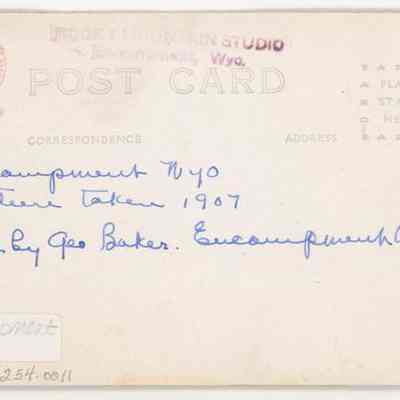 STUDIO
Encampment, Wyo.
POST CARD
CORRESPONDENCE
ADDRESS
ampment Wyo
ture taken 1907
by Geo Baker. Encampment
pment
254.0011